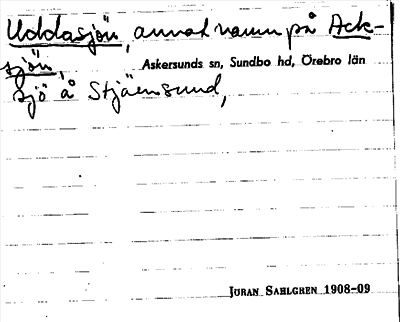 Uddasjön, annat namn på Ack-
sjön,
Askersunds sn, Sundbo hd, Örebro län
sjö å Stjäernsund,
JÖRAN SAHLGREN 1908-09